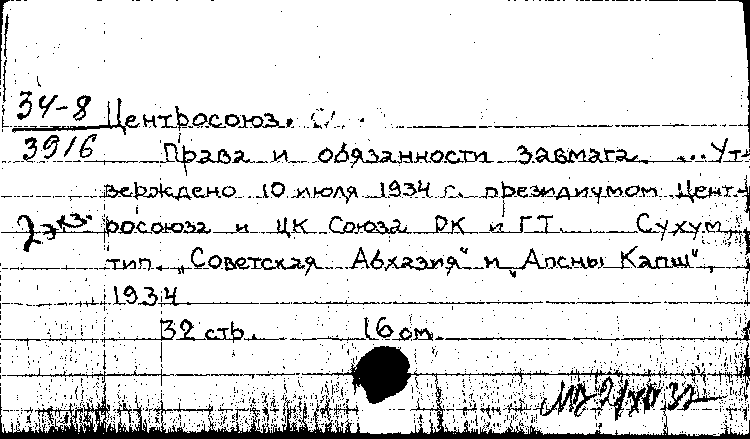 34-8
3916
Центросоюз.
Права и обязанности завмага. ...Ут-
верждено 10 июля 1934 г. президиумом Цент-
2 экз.
росоюза и ЦК Союза РК и Г.Т. Сухум,
тип. „Советская Абхазия" и „Апсны Капш",
1934.
32 стр. 16 см.